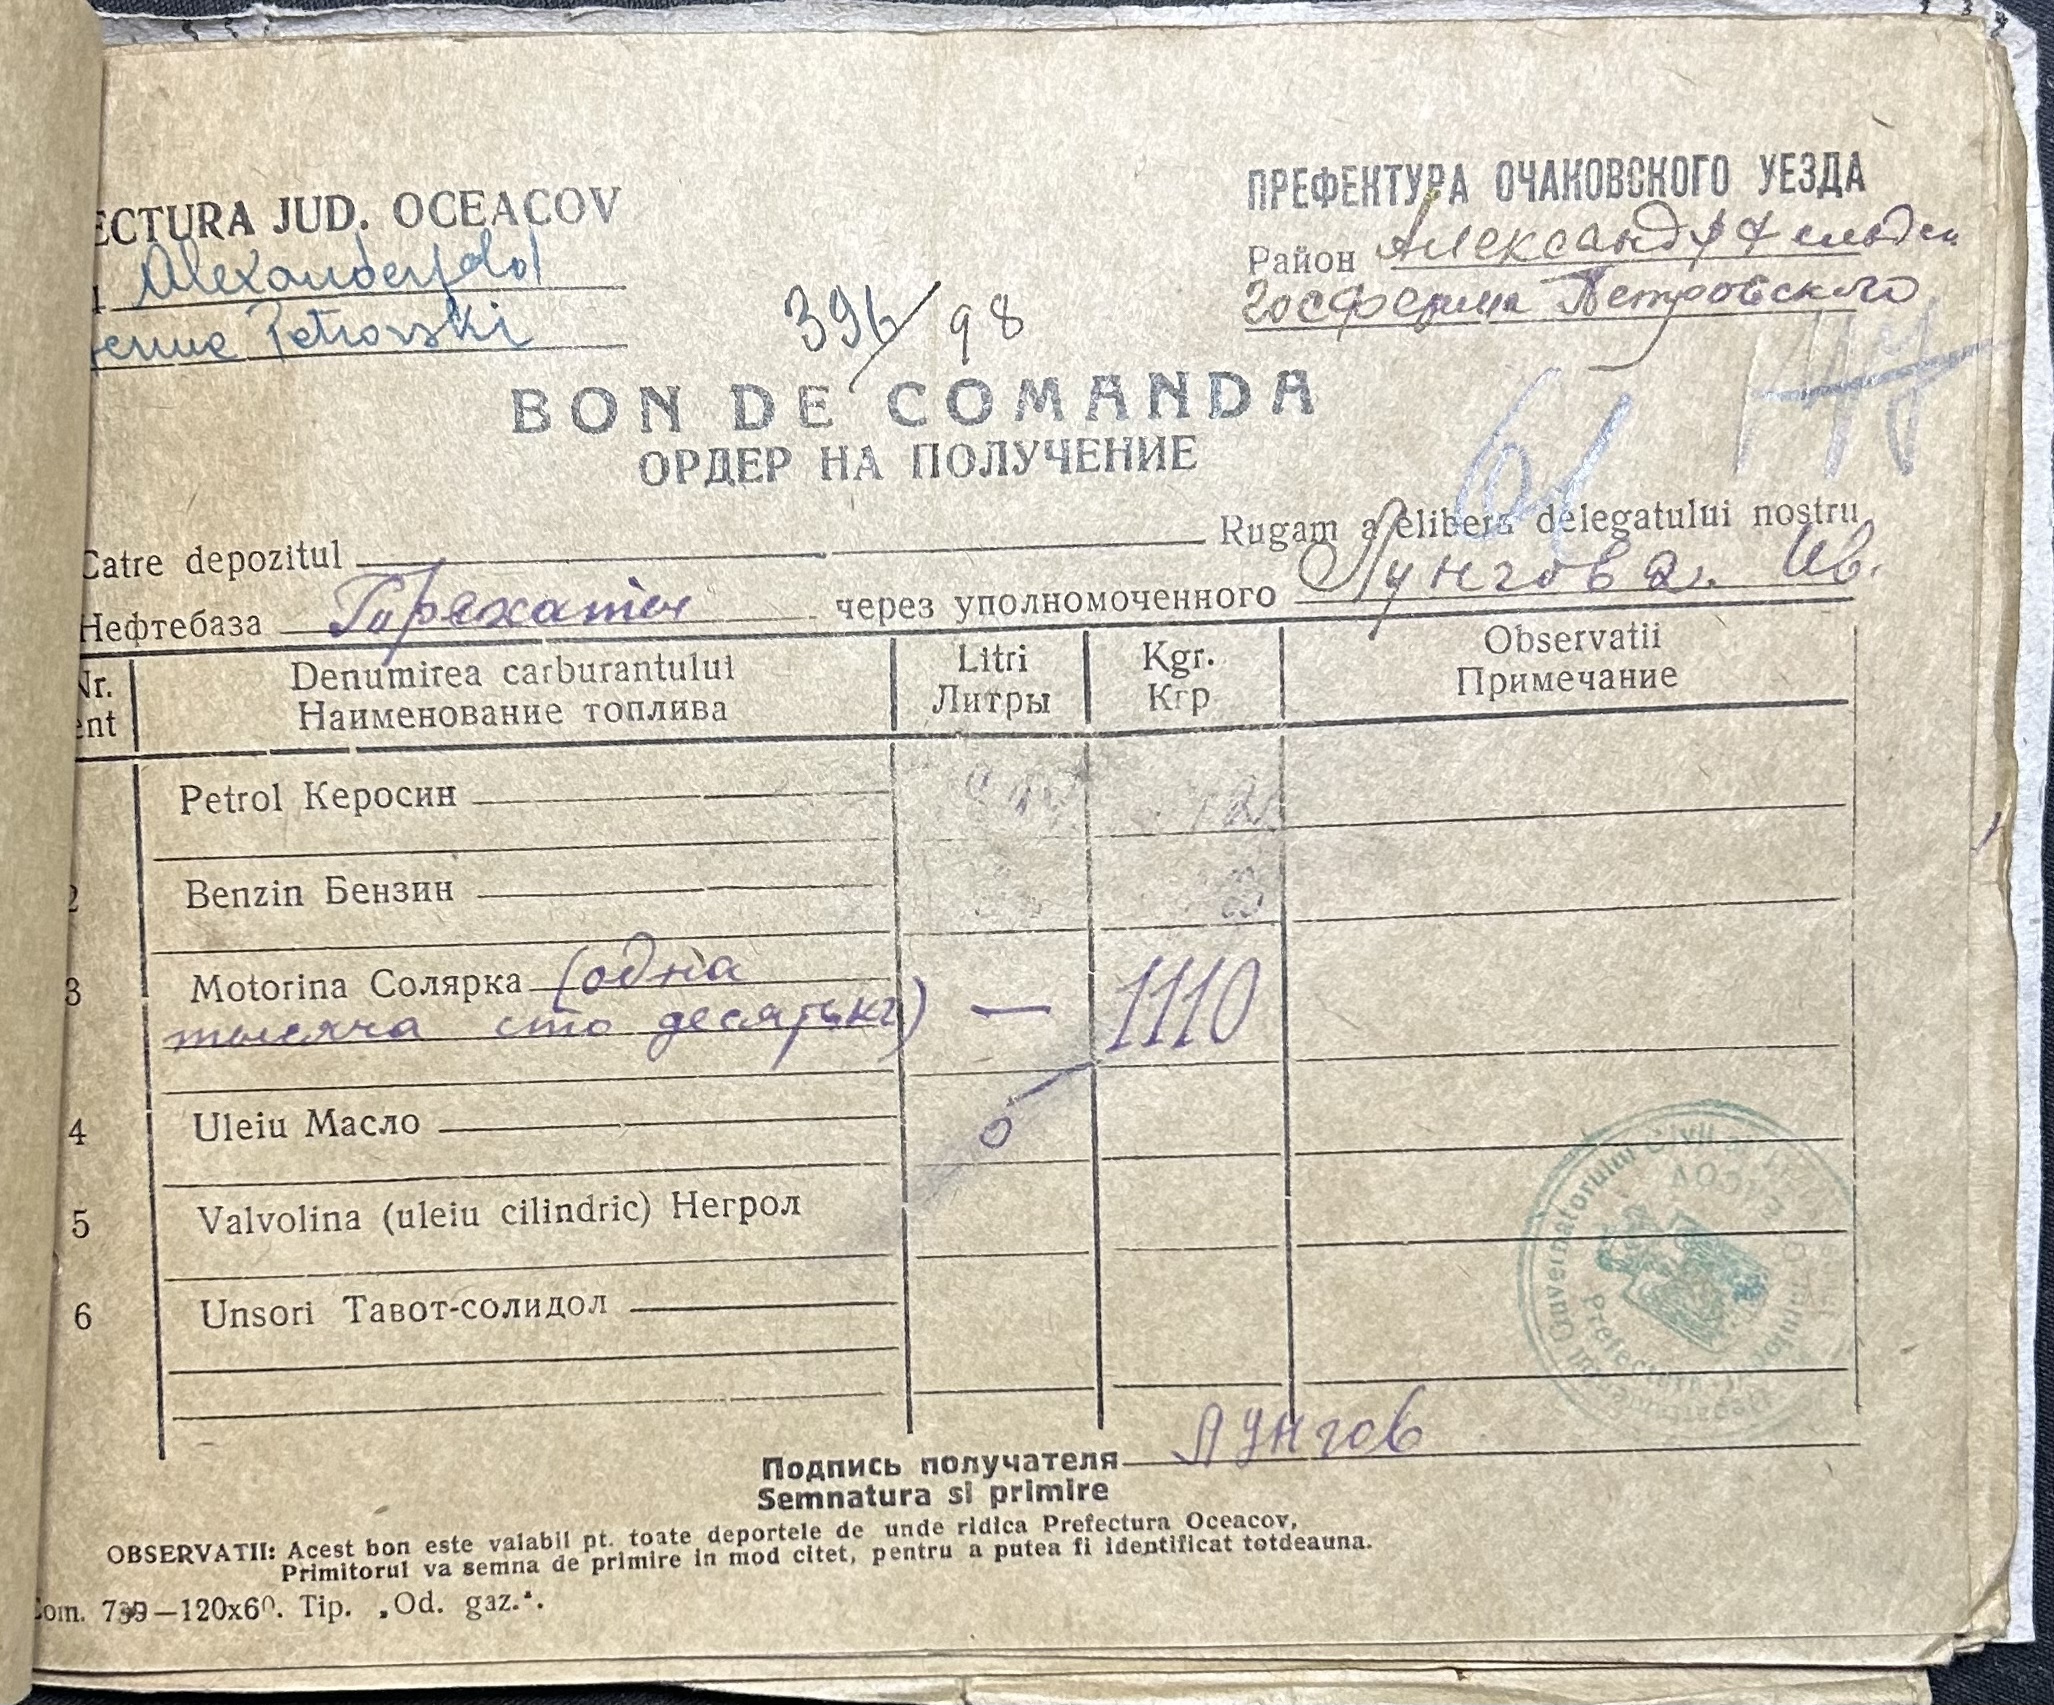 ECTURA JUD. OCEACOV
Alexanderfeld
Petrovski
ПРЕФЕКТУРА ОЧАКОВСКОГО УЕЗДА
Район Александрфельдск
Госферма Петровского
396/98
BON DE COMANDA
ОРДЕР НА ПОЛУЧЕНИЕ
Catre depozitul Rugam a elibera delegatului nostru
Нефтебаза через уполномоченного Лунгова Ив.
Nr. Denumirea carburantului Litri Kgr. Observatii
ent Наименование топлива Литры Кгр Примечание
Petrol Керосин
2 Benzin Бензин
3 Motorina Солярка (одна
тысяча сто десять кг) — 1110
4 Uleiu Масло
5 Valvolina (uleiu cilindric) Негрол
6 Unsori Тавот-солидол
Guvernatorului Civil
Prefectura
Подпись получателя Лунгов
Semnatura si primire
OBSERVATII: Acest bon este valabil pt. toate deportele de unde ridica Prefectura Oceacov,
Primitorul va semna de primire in mod citet, pentru a putea fi identificat totdeauna.
Com. 739—120x60. Tip. „Od. gaz.".